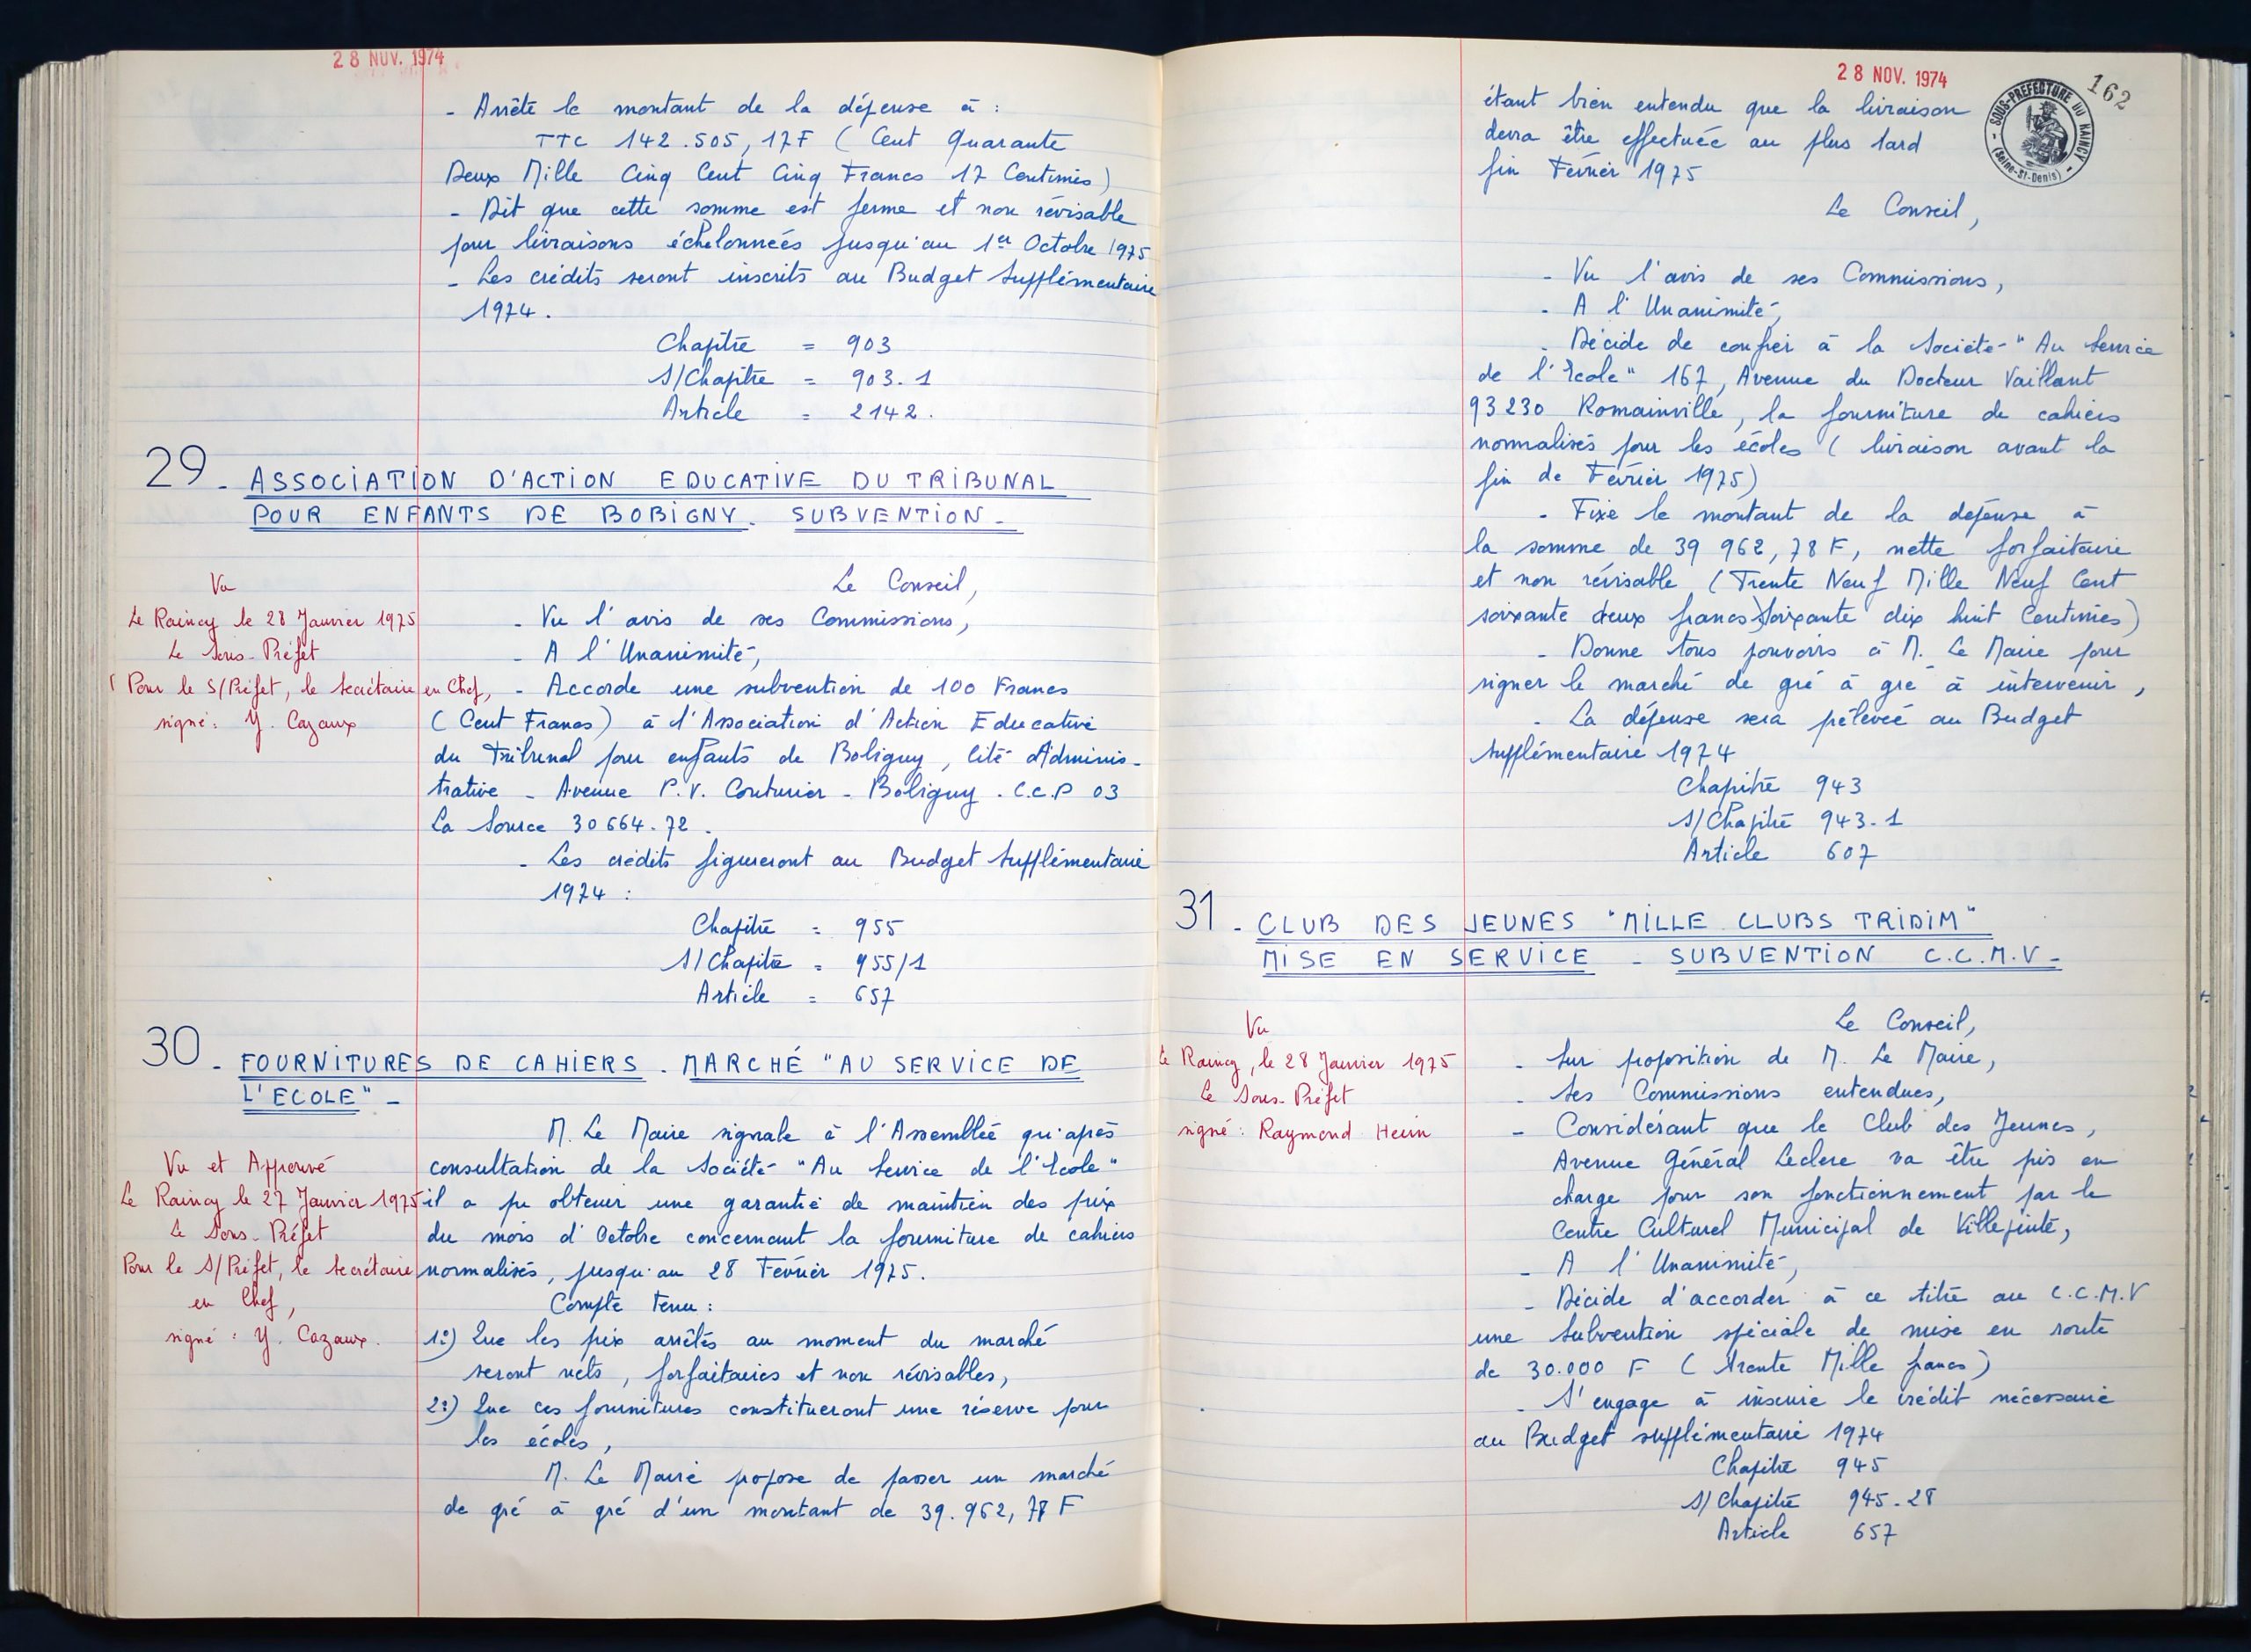 28 NOV. 1974
- Arrête le montant de la dépense à :
TTC 142.505,17F ( Cent Quarante
Deux Mille Cinq Cent Cinq Francs 17 Centimes)
- Dit que cette somme est ferme et non révisable
pour livraisons échelonnées jusqu'au 1er Octobre 1975
- Les crédits seront inscrits au Budget Supplémentaire
1974.
Chapitre = 903
S/Chapitre = 903.1
Article = 2142.
29 - ASSOCIATION D'ACTION EDUCATIVE DU TRIBUNAL
POUR ENFANTS DE BOBIGNY. SUBVENTION -
Vu
Le Raincy le 28 Janvier 1975
Le Sous-Préfet
Pour le S/Préfet, le Secrétaire en Chef,
signé : Y. Cazaux
Le Conseil,
- Vu l'avis de ses Commissions,
- A l'Unanimité,
- Accorde une subvention de 100 Francs
( Cent Francs) à l'Association d'Action Educative
du Tribunal pour enfants de Bobigny, Cité Adminis-
trative - Avenue P.V. Couturier - Bobigny - C.C.P 03
La Source 30664-72.
- Les crédits figureront au Budget Supplémentaire
1974 :
Chapitre = 955
S/Chapitre = 955/1
Article = 657
30 - FOURNITURES DE CAHIERS . MARCHÉ "AU SERVICE DE
L'ECOLE" -
Vu et Approuvé
Le Raincy le 27 Janvier 1975
Le Sous-Préfet
Pour le S/Préfet, le Secrétaire
en Chef,
signé : Y. Cazaux.
M. Le Maire signale à l'Assemblée qu'après
consultation de la Société "Au Service de l'Ecole"
il a pu obtenir une garantie de maintien des prix
du mois d'Octobre concernant la fourniture de cahiers
normalisés, jusqu'au 28 Février 1975.
Compte tenu :
1°) Que les prix arrêtés au moment du marché
seront nets, forfaitaires et non révisables,
2°) Que ces fournitures constitueront une réserve pour
les écoles,
M. Le Maire propose de passer un marché
de gré à gré d'un montant de 39.962,78 F
28 NOV. 1974
162
SOUS-PREFECTURE DU RAINCY
(Seine-St-Denis)
étant bien entendu que la livraison
devra être effectuée au plus tard
fin Février 1975
Le Conseil,
- Vu l'avis de ses Commissions,
- A l'Unanimité,
- Décide de confier à la Société "Au Service
de l'Ecole" 167, Avenue du Docteur Vaillant
93230 Romainville, la fourniture de cahiers
normalisés pour les écoles ( livraison avant la
fin de Février 1975)
- Fixe le montant de la dépense à
la somme de 39 962,78 F, nette forfaitaire
et non révisable (Trente Neuf Mille Neuf Cent
soixante deux francs soixante dix huit Centimes)
- Donne tous pouvoirs à M. Le Maire pour
signer le marché de gré à gré à intervenir,
- La dépense sera prélevée au Budget
Supplémentaire 1974
Chapitre 943
S/Chapitre 943-1
Article 607
31 - CLUB DES JEUNES "MILLE CLUBS TRIDIM"
MISE EN SERVICE - SUBVENTION C.C.M.V -
Vu
Le Raincy, le 28 Janvier 1975
Le Sous-Préfet
signé : Raymond Heim
Le Conseil,
- Sur proposition de M. Le Maire,
- Ses Commissions entendues,
- Considérant que le Club des Jeunes,
Avenue Général Leclerc va être pris en
charge pour son fonctionnement par le
Centre Culturel Municipal de Villepinte,
- A l'Unanimité,
- Décide d'accorder à ce titre au C.C.M.V
une Subvention spéciale de mise en route
de 30.000 F ( trente Mille francs)
- S'engage à inscrire le crédit nécessaire
au Budget supplémentaire 1974
Chapitre 945
S/Chapitre 945-28
Article 657